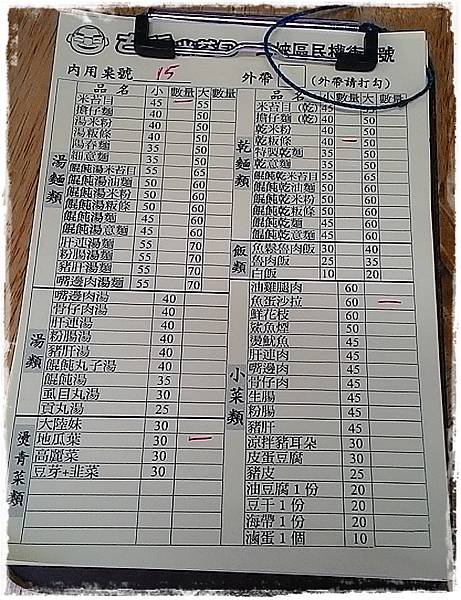 內用桌號 15 外帶 (外帶請打勾)
品名 小 數量 大 數量
湯麵類
米苔目 45 55
擔仔麵 40 50
湯米粉 40 50
湯粄條 40 50
陽春麵 35 50
細意麵 35 50
餛飩湯米苔目 55 65
餛飩湯油麵 50 60
餛飩湯米粉 50 60
餛飩湯粄條 50 60
餛飩湯麵 45 60
餛飩湯意麵 45 60
肝連湯麵 55 70
粉腸湯麵 55 70
豬肝湯麵 55 70
嘴邊肉湯麵 55 70
湯類
嘴邊肉湯 40
骨仔肉湯 40
肝連湯 40
粉腸湯 40
豬肝湯 40
餛飩丸子湯 40
餛飩湯 35
虱目丸湯 30
貢丸湯 25
燙青菜類
大陸妹 30
地瓜葉 30
高麗菜 30
豆芽+韭菜 30
品名 小 數量 大 數量
乾麵類
米苔目(乾) 45 55
擔仔麵(乾) 40 50
乾米粉 40 50
乾粄條 40 50
特製乾麵 35 50
乾意麵 35 50
餛飩乾米苔目 55 65
餛飩乾油麵 50 60
餛飩乾米粉 50 60
餛飩乾粄條 50 60
餛飩乾麵 45 60
餛飩乾意麵 45 60
飯類
魚鬆魯肉飯 30 40
魯肉飯 25 35
白飯 10 20
小菜類
油雞腿肉 60
魚蛋沙拉 60
鮮花枝 60
鯊魚煙 50
燙魷魚 45
肝連肉 45
嘴邊肉 45
骨仔肉 45
生腸 45
粉腸 45
豬肝 45
涼拌豬耳朵 30
皮蛋豆腐 30
豬皮 25
油豆腐1份 20
豆干1份 20
海帶1份 20
滷蛋1個 10